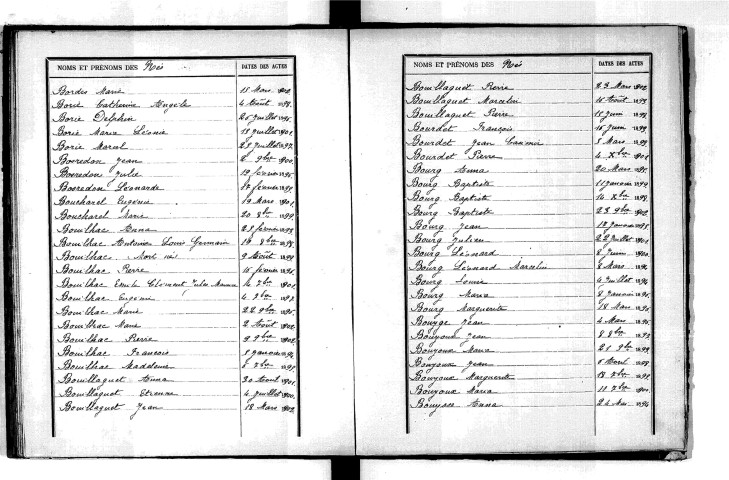 NOMS ET PRÉNOMS DES Nés DATES DES ACTES
Bordes Marie 15 Mars 1902
Borie Catherine Angèle 4 Août
Borie Delphin 26 Juillet
Borie Maria Léonie 15 Juillet 1901
Borie Marcel 25 Juillet 1897
Borredon Jean 2 9bre 1900
Borredon Julie 19 février 1895
Borredon Léonarde 17 février
Boucharel Eugénie 19 Mars 1901
Boucharel Marie 20 8bre 1899
Bouilhac Anna 23 février
Bouilhac Antonin Louis Germain 16 8bre
Bouilhac Mort né 9 Août 1899
Bouilhac Pierre 15 février
Bouilhac Emile Clément Jules 14 7bre
Bouilhac Eugénie 4 9bre
Bouilhac Marie 22 9bre
Bouilhac Marie 2 Août 1902
Bouilhac Pierre 9 9bre 1902
Bouilhac François 5 Janvier
Bouilhac Madeleine 5 7bre
Bouillaguet Anna 30 Avril 1901
Bouillaguet Etienne 4 Juillet 1900
Bouillaguet Jean 18 Mars 1902
NOMS ET PRÉNOMS DES Nés DATES DES ACTES
Bouillaguet Pierre 23 Mars 1902
Bouillaguet Marcelin 15 Août
Bouillaguet Pierre 15 Juin
Bourdet François 16 Juin 1899
Bourdet Jean 5 Mars 1899
Bourdet Pierre 4 Xbre 1901
Bourg Anna 20 Mars
Bourg Baptiste 11 Janvier
Bourg Baptiste 14 Xbre
Bourg Baptiste 23 9bre 1902
Bourg Jean 12 Janvier
Bourg Julien 22 Juillet 1901
Bourg Léonard 8 Juin 1900
Bourg Léonard Marcelin 8 Mars
Bourg Louise 4 Juillet
Bourg Maria 8 Janvier
Bourg Marguerite 18 Mars
Bouyge Jean 4 Mars
Bouyoux Jean 8 8bre
Bouyoux Maria 21 9bre 1899
Bouyoux Jean 5 Avril
Bouyoux Marguerite 13 7bre
Bouyoux Maria 11 7bre 1900
Bouysse Anna 24 Mai